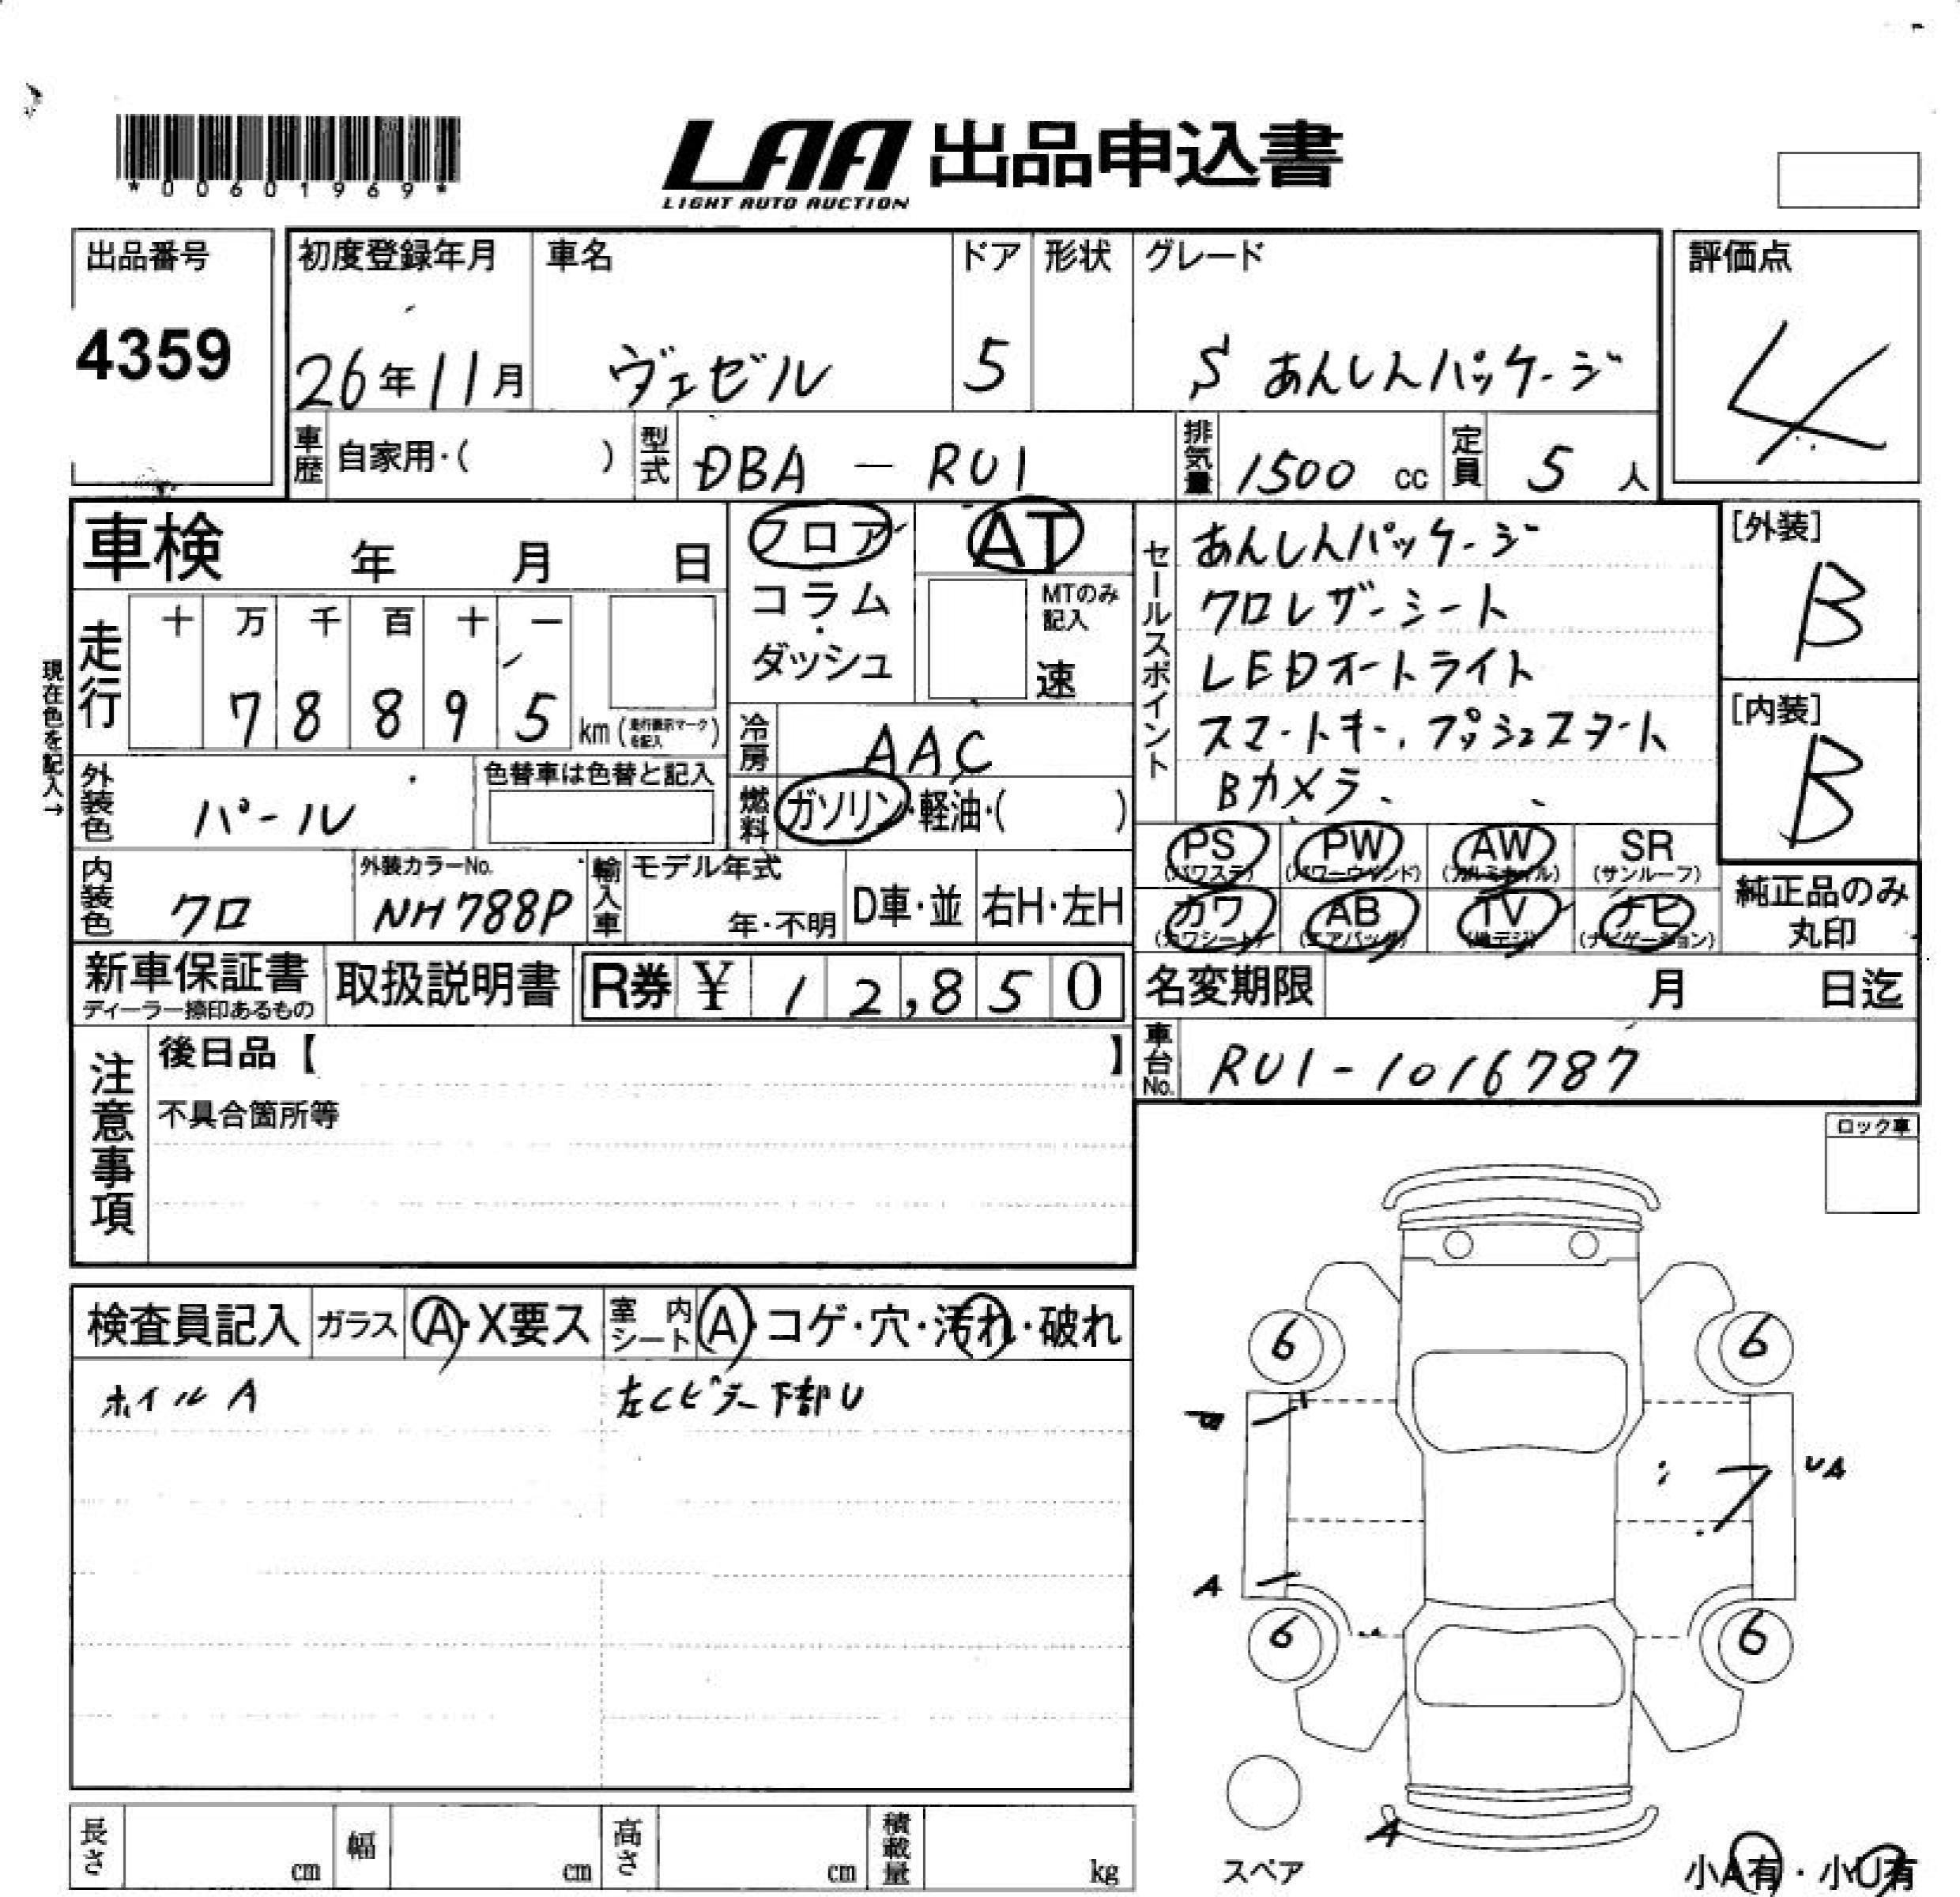 *00601969*
LAA 出品申込書
LIGHT AUTO AUCTION
出品番号
4359
初度登録年月
26年11月
車名
ヴェゼル
ドア
5
形状
グレード
S あんしんパッケージ
評価点
4
車歴 自家用・( )
型式 DBA - RU1
排気量 1500 cc
定員 5 人
車検 年 月 日
フロア
コラム
・
ダッシュ
AT
MTのみ記入
速
セールスポイント
あんしんパッケージ
クロレザーシート
LEDオートライト
スマートキー、プッシュスタート
Bカメラ、
[外装]
B
[内装]
B
現在色を記入→
走行
十 万 千 百 十 一
7 8 8 9 5 km (走行表示マークを記入)
冷房 AAC
外装色 パール
色替車は色替と記入
燃料 ガソリン・軽油・( )
PS (パワステ)
PW (パワーウインド)
AW (アルミホイル)
SR (サンルーフ)
内装色 クロ
外装カラーNo.
NH788P
輸入車
モデル年式
年・不明
D車・並
右H・左H
カワ (カワシート)
AB (エアバッグ)
TV (地デジ)
ナビ (ナビゲーション)
純正品のみ
丸印
新車保証書
ディーラー捺印あるもの
取扱説明書
R券 ¥ 12,850
名変期限 月 日迄
注意事項
後日品【 】
不具合箇所等
車台No. RU1-1016787
ロック車
検査員記入
ガラス A・X要ス
室内シート A・コゲ・穴・汚れ・破れ
ホイルA
左Cピラー下部U
6
6
UA
A
6
6
A
スペア
長さ cm
幅 cm
高さ cm
積載量 kg
小A有・小U有